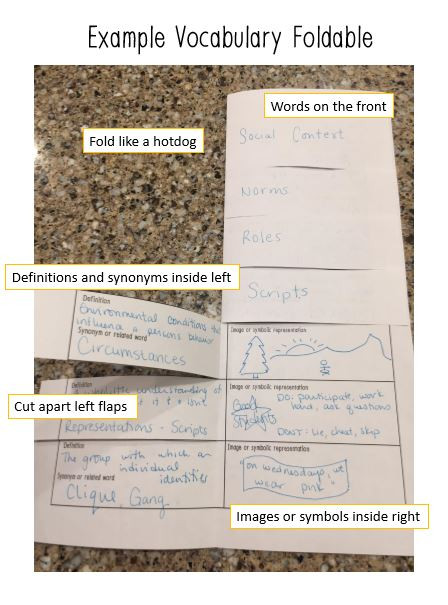 Example Vocabulary Foldable
Words on the front
Social Context
Fold like a hotdog
Norms
Roles
Definitions and synonyms inside left
Scripts
Definition
Environmental conditions tha
influence a persons behavior
Synonym or related word
Circumstances
Image or symbolic representation
Cut apart left flaps
Definition
understanding of
it is
Representations - Scripts
Image or symbolic representation
Good
Students
DO: participate, work
hard, ask questions
DON'T: lie, cheat, skip
Definition
The group with which an
individual
identifies
Synonym or related word
Clique, Gang
Image or symbolic representation
"on wednesdays, we
wear pink"
Images or symbols inside right